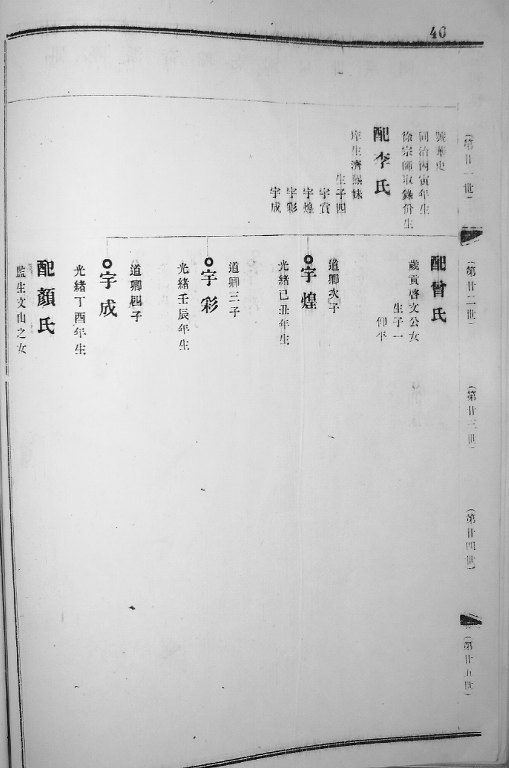 40
(第廿一世)
號華史
同治丙寅年生
徐宗師取錄佾生
配李氏
庠生濟猛妹
生子四
宇賓
宇煌
宇彩
宇成
(第廿二世)
配曾氏
歲貢啓文公女
生子一
仰平
道卿次子
宇煌
光緒己丑年生
道卿三子
宇彩
光緒壬辰年生
道卿四子
宇成
光緒丁酉年生
配顏氏
監生文山之女
(第廿三世)
(第廿四世)
(第廿五世)